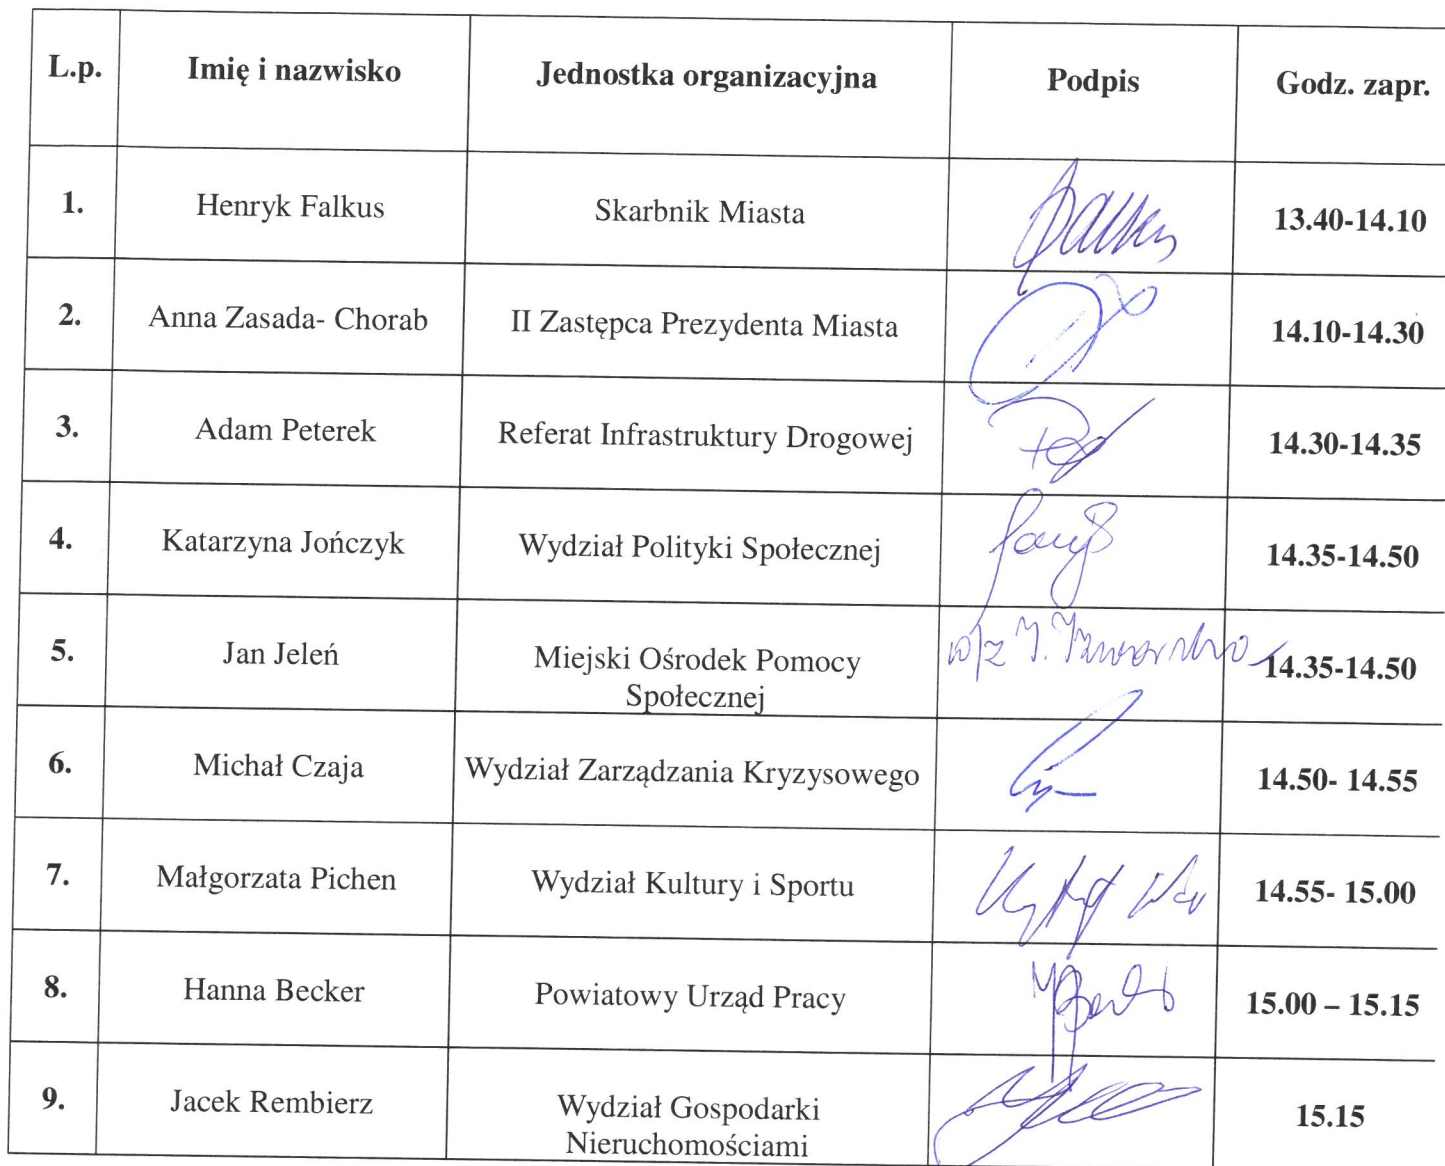 L.p. Imię i nazwisko Jednostka organizacyjna Podpis Godz. zapr.
1. Henryk Falkus Skarbnik Miasta 13.40-14.10
2. Anna Zasada- Chorab II Zastępca Prezydenta Miasta 14.10-14.30
3. Adam Peterek Referat Infrastruktury Drogowej 14.30-14.35
4. Katarzyna Jończyk Wydział Polityki Społecznej 14.35-14.50
5. Jan Jeleń Miejski Ośrodek Pomocy w/z 14.35-14.50
Społecznej
6. Michał Czaja Wydział Zarządzania Kryzysowego 14.50- 14.55
7. Małgorzata Pichen Wydział Kultury i Sportu 14.55- 15.00
8. Hanna Becker Powiatowy Urząd Pracy 15.00 – 15.15
9. Jacek Rembierz Wydział Gospodarki 15.15
Nieruchomościami